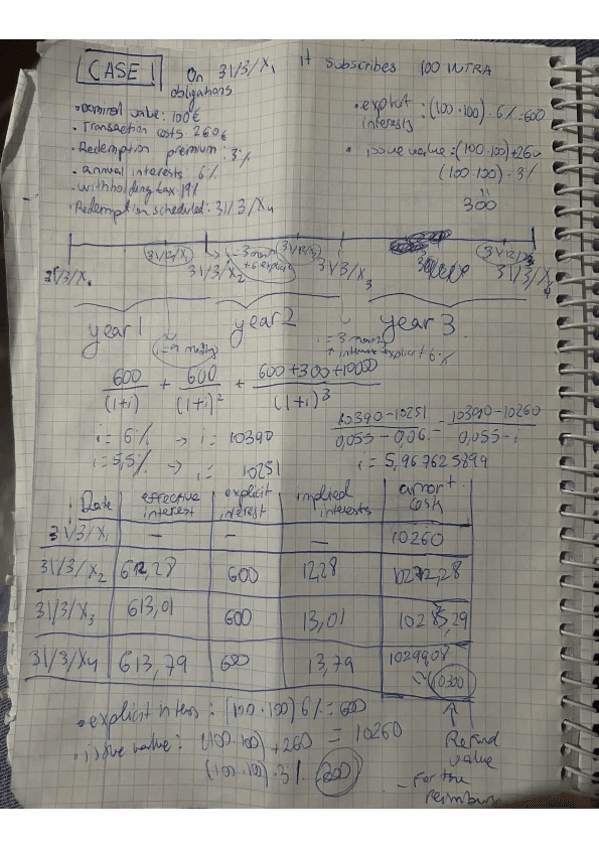 CASE 1
On 31/3/X1 it subscribes 100 INTRA
obligations
· nominal value: 100€
· Transaction costs 260€
· Redemption premium: 3%
· annual interests 6%
· withholding tax 19%
· Redemption scheduled: 31/3/X4
· explicit interests : (100·100)·6%=600
· issue value = (100·100)+260
(100·100)·3%
300
31/3/X1
31/12/X1
31/3/X2
-3 month
+6 explicit
31/12/X2
31/3/X3
31/12/X3
31/3/X4
year 1 year 2 year 3
i=9 months
i = 3 month
+ interes explicit 6%
600/(1+i) + 600/(1+i)² + 600+300+10000/(1+i)³
i=6% → i= 10390
i=5,5% → i= 10251
10390-10251/0,055-0,06 = 10390-10260/0,055-i
i= 5,967625899
Date effective interest explicit interest implied interests amort. cost
31/3/X1 — — — 10260
31/3/X2 612,28 600 12,28 10272,28
31/3/X3 613,01 600 13,01 10285,29
31/3/X4 613,79 600 13,79 10299,08
10300
· explicit inters : (100·100) 6%=600
· issue value: (100·100)+260 = 10260
(100·100)·3% 300
Refund value
- For the